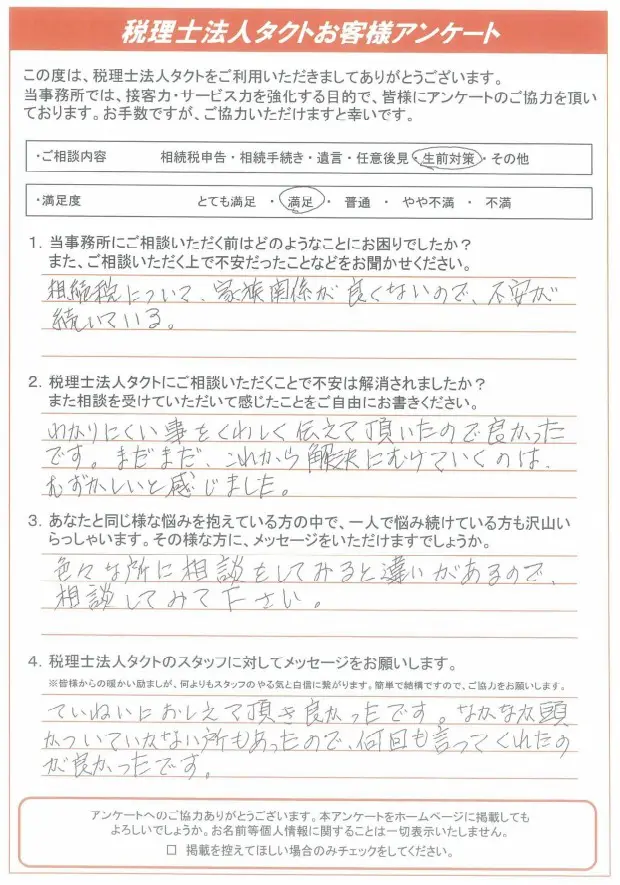 税理士法人タクトお客様アンケート
この度は、税理士法人タクトをご利用いただきましてありがとうございます。
当事務所では、接客力・サービス力を強化する目的で、皆様にアンケートのご協力を頂い
ております。お手数ですが、ご協力いただけますと幸いです。
・ご相談内容　相続税申告・相続手続き・遺言・任意後見・生前対策・その他
・満足度　とても満足 ・ 満足 ・ 普通 ・ やや不満 ・ 不満
1. 当事務所にご相談いただく前はどのようなことにお困りでしたか？
また、ご相談いただく上で不安だったことなどをお聞かせください。
相続税について、家族関係が良くないので、不安が
続いている。
2. 税理士法人タクトにご相談いただくことで不安は解消されましたか？
また相談を受けていただいて感じたことをご自由にお書きください。
わかりにくい事をくわしく伝えて頂いたので良かった
です。まだまだ、これから解決にむけていくのは、
むずかしいと感じました。
3. あなたと同じ様な悩みを抱えている方の中で、一人で悩み続けている方も沢山い
らっしゃいます。その様な方に、メッセージをいただけますでしょうか。
色々な所に相談をしてみると違いがあるので、
相談してみて下さい。
4. 税理士法人タクトのスタッフに対してメッセージをお願いします。
※皆様からの暖かい励ましが、何よりもスタッフのやる気と自信に繋がります。簡単で結構ですので、ご協力をお願いします。
ていねいにおしえて頂き良かったです。なかなか頭
がついていかない所もあったので、何回も言ってくれたの
が良かったです。
アンケートへのご協力ありがとうございます。本アンケートをホームページに掲載しても
よろしいでしょうか。お名前等個人情報に関することは一切表示いたしません。
□ 掲載を控えてほしい場合のみチェックをしてください。